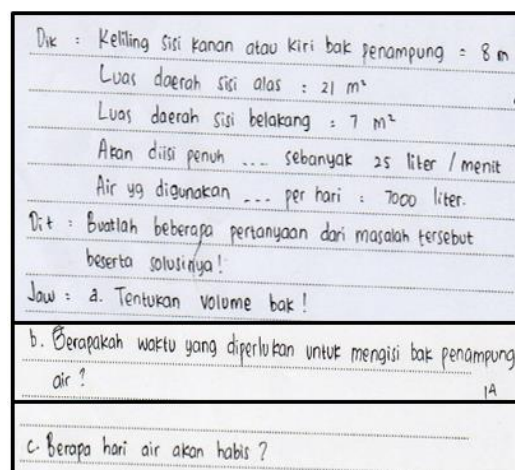 Dik : Keliling sisi kanan atau kiri bak penampung = 8 m
Luas daerah sisi alas : 21 m²
Luas daerah sisi belakang : 7 m²
Akan diisi penuh ... sebanyak 25 liter / menit
Air yg digunakan ... per hari : 7000 liter.
Dit : Buatlah beberapa pertanyaan dari masalah tersebut
beserta solusinya!
Jaw : a. Tentukan volume bak !
b. Berapakah waktu yang diperlukan untuk mengisi bak penampung
air ?
1A
c. Berapa hari air akan habis ?